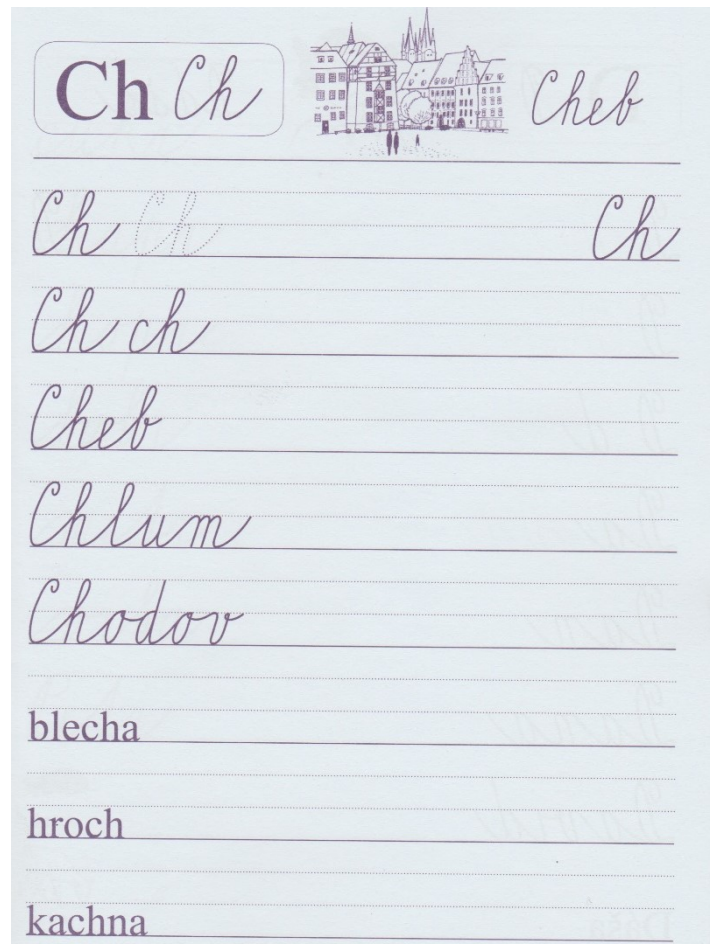 Ch Ch Cheb
Ch Ch Ch
Ch ch
Cheb
Chlum
Chodov
blecha
hroch
kachna